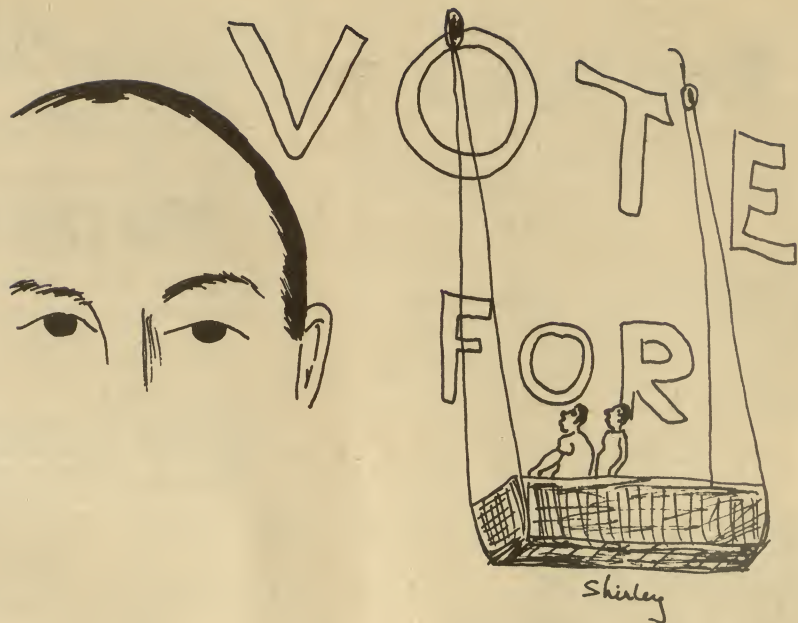 VOTE
FOR
Shirley